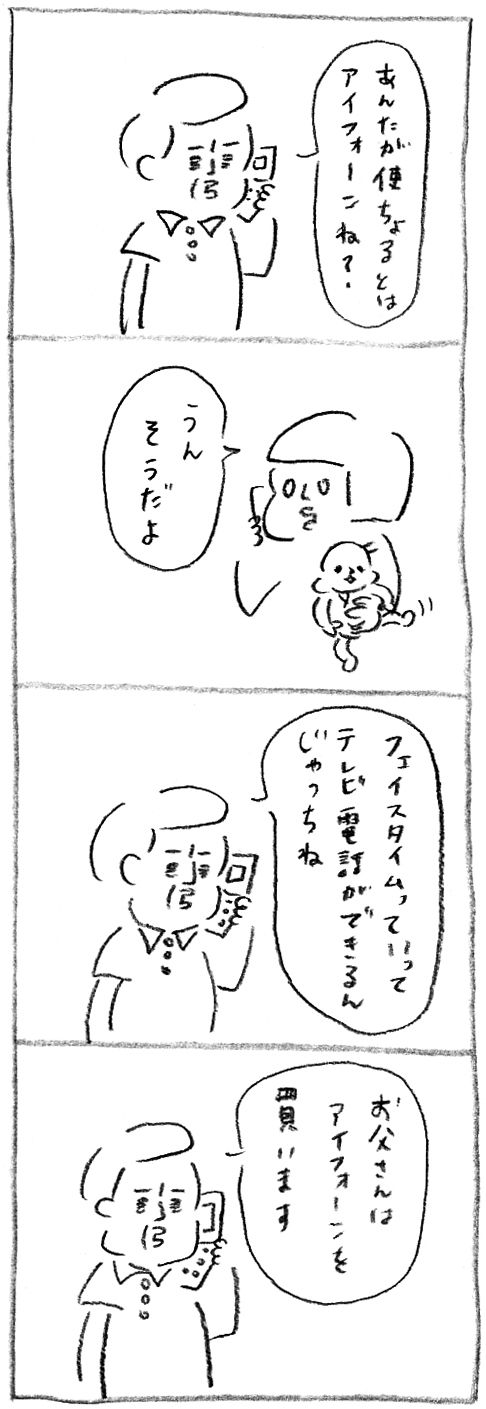 あんたが使ちょるとは
アイフォーンね？
うん
そうだよ
フェイスタイムっていって
テレビ電話ができるん
じゃっちね
お父さんは
アイフォーンを
買います